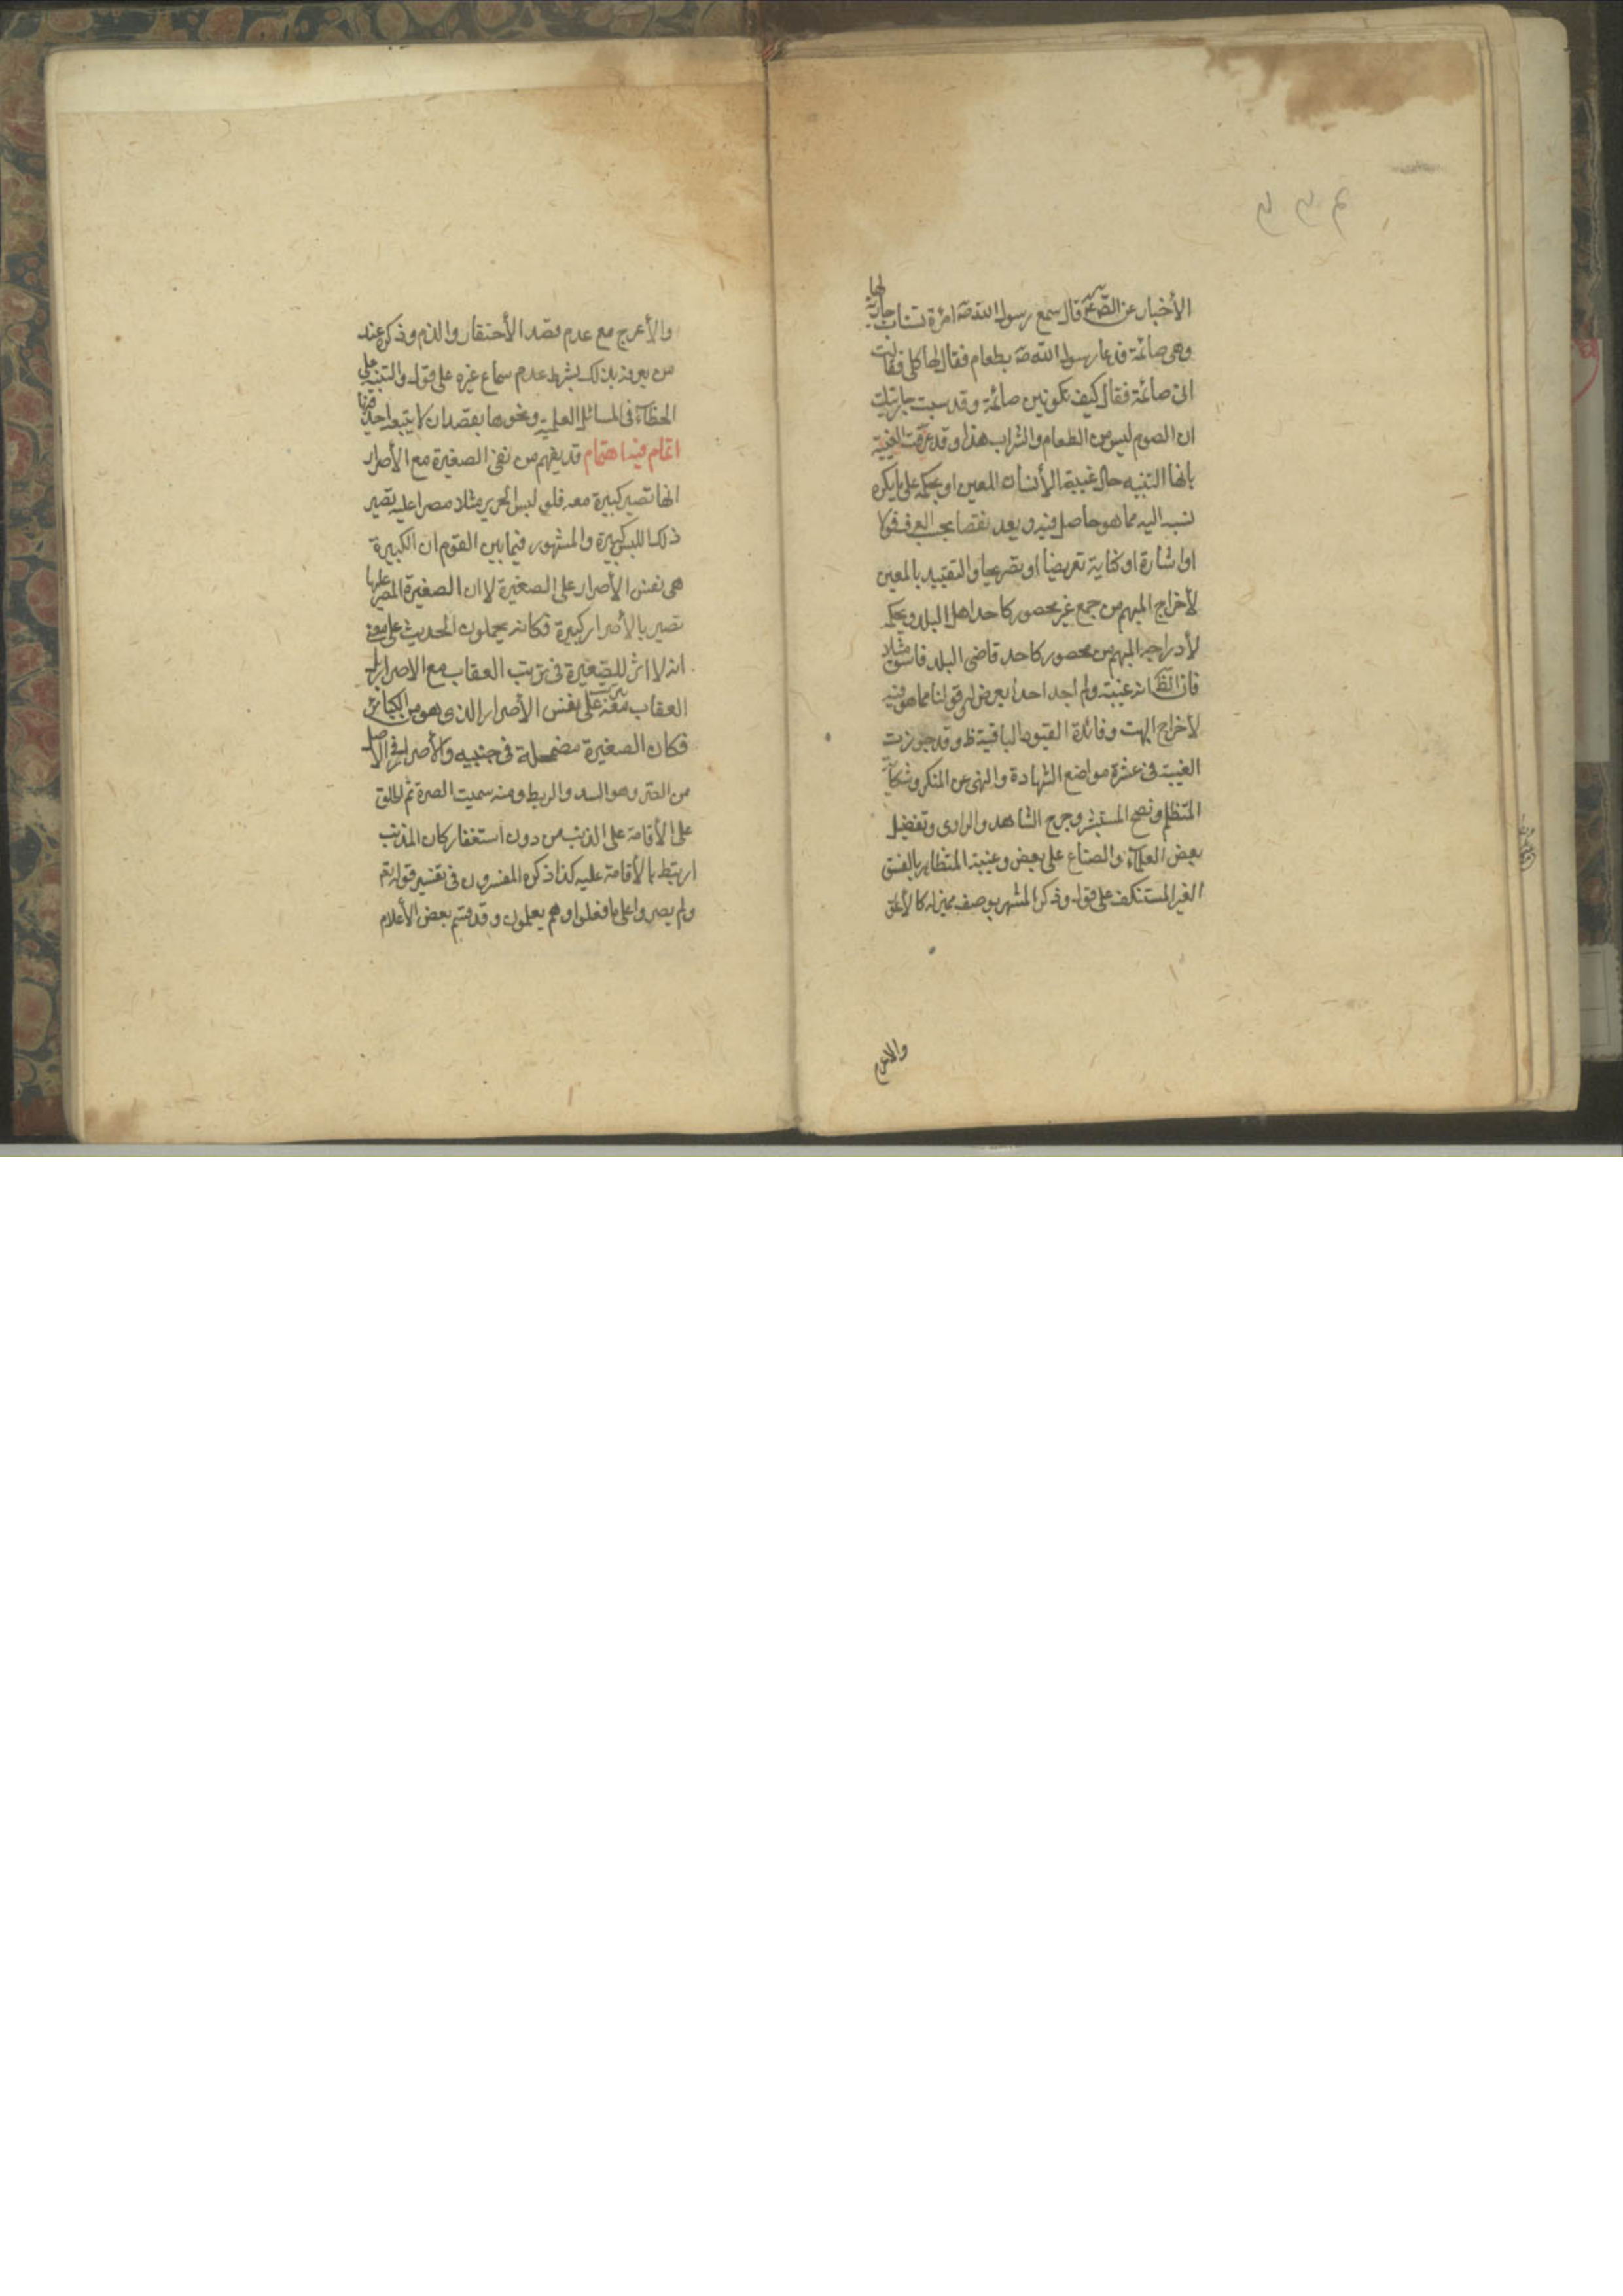 الأخبار عن الصع قال سمع رسول الله صه امرأة تساب جارية لها
وهى صائمة فدعا رسول الله صه بطعام فقال لها كلى فقالت
انى صائمة فقال كيف تكونين صائمة وقد سببت جاريتك
ان الصوم ليس من الطعام والشراب هذا وقد عرفت الغيبة
بانها التنبيه حال غيبة الأنسان المعين او بحكمه على ما يكره
نسبه اليه مما هو حاصل فيه ويعد نقصا بحسب العرف قولا
او اشارة او كناية تعريضا او تصريحا والتقييد بالمعين
لأخراج المبهم من جمع غير محصور كاحد اهل البلد وبحكمه
لأدراجه المبهم من محصور كاحد قاضى البلد فاسق مثلا
فان الظ انه غيبة ولم اجد احدا يعرض له قولنا مما هو فيه
لأخراج البهت وفائدة القيود الباقية ظ وقد جوزت
الغيبة فى عشرة مواضع الشهادة والنهى عن المنكر وشكاية
المتظلم ونصح المستشير وجرح الشاهد والراوى وتفضيل
بعض العلماء والصناع على بعض وغيبة المتظاهر بالفسق
الغير المستنكف على قول وذكر المشهر بوصف مميز له كالأعور
والاعرج
والأعرج مع عدم قصد الأحتقار والذم وذكره عند
من يعرفه بذلك بشرط عدم سماع غيره على قول والتنبيه على
الخطاء فى المسائل العلمية ونحوها بقصد ان لا يتبعه احد فيها
اتمام فيه اهتمام قد يفهم من نفى الصغيرة مع الأصرار
انها تصير كبيرة معه فلو لبس الحرير مثلا مصرا عليه تصير
ذلك اللبس كبيرة والمشهور فيما بين القوم ان الكبيرة
هى نفس الأصرار على الصغيرة لا ان الصغيرة المصر عليها
تصير بالأصرار كبيرة فكانه يحملون الحديث على معنى
انه لا اثر للصغيرة فى ترتب العقاب مع الاصرار بل
العقاب معه يترتب على نفس الأصرار الذى هو من الكبائر
فكان الصغيرة مضمحلة فى جنبيه والأصرار فى الاصل
من الصر وهو الشد والربط ومنه سميت الصرة ثم اطلق
على الأقامة على الذنب من دون استغفار كان المذنب
ارتبط بالأقامة عليه كذا ذكره المفسرون فى تفسير قوله تع
ولم يصروا على ما فعلوا وهم يعلمون وقد قسم بعض الأعلام